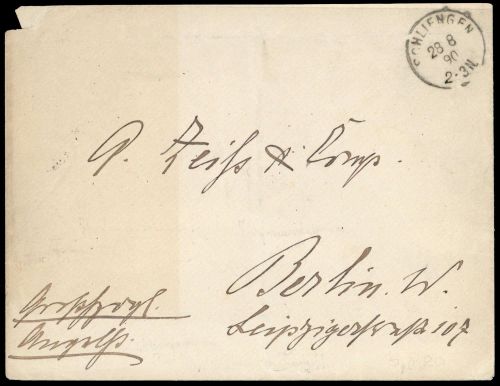 SCHLIENGEN
28 8
90
2-3N.
A. Zeiß & Comp.
Berlin. W.
Leipzigerstraße 107
Großherzogl.
Angelh.